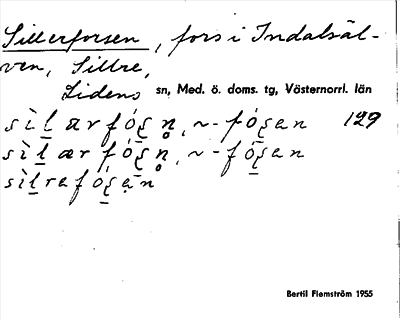 Sillerforsen, fors i Indalsäl-
ven, Sillre,
Lidens sn, Med. ö. doms. tg, Västernorrl. län
sìl̲ ærfóʂn̥, ~-fóʂan 129
sìl̲ ær fóʂn̥, ~-fóʂan
sìl̲refóʂən̥
Bertil Flemström 1955